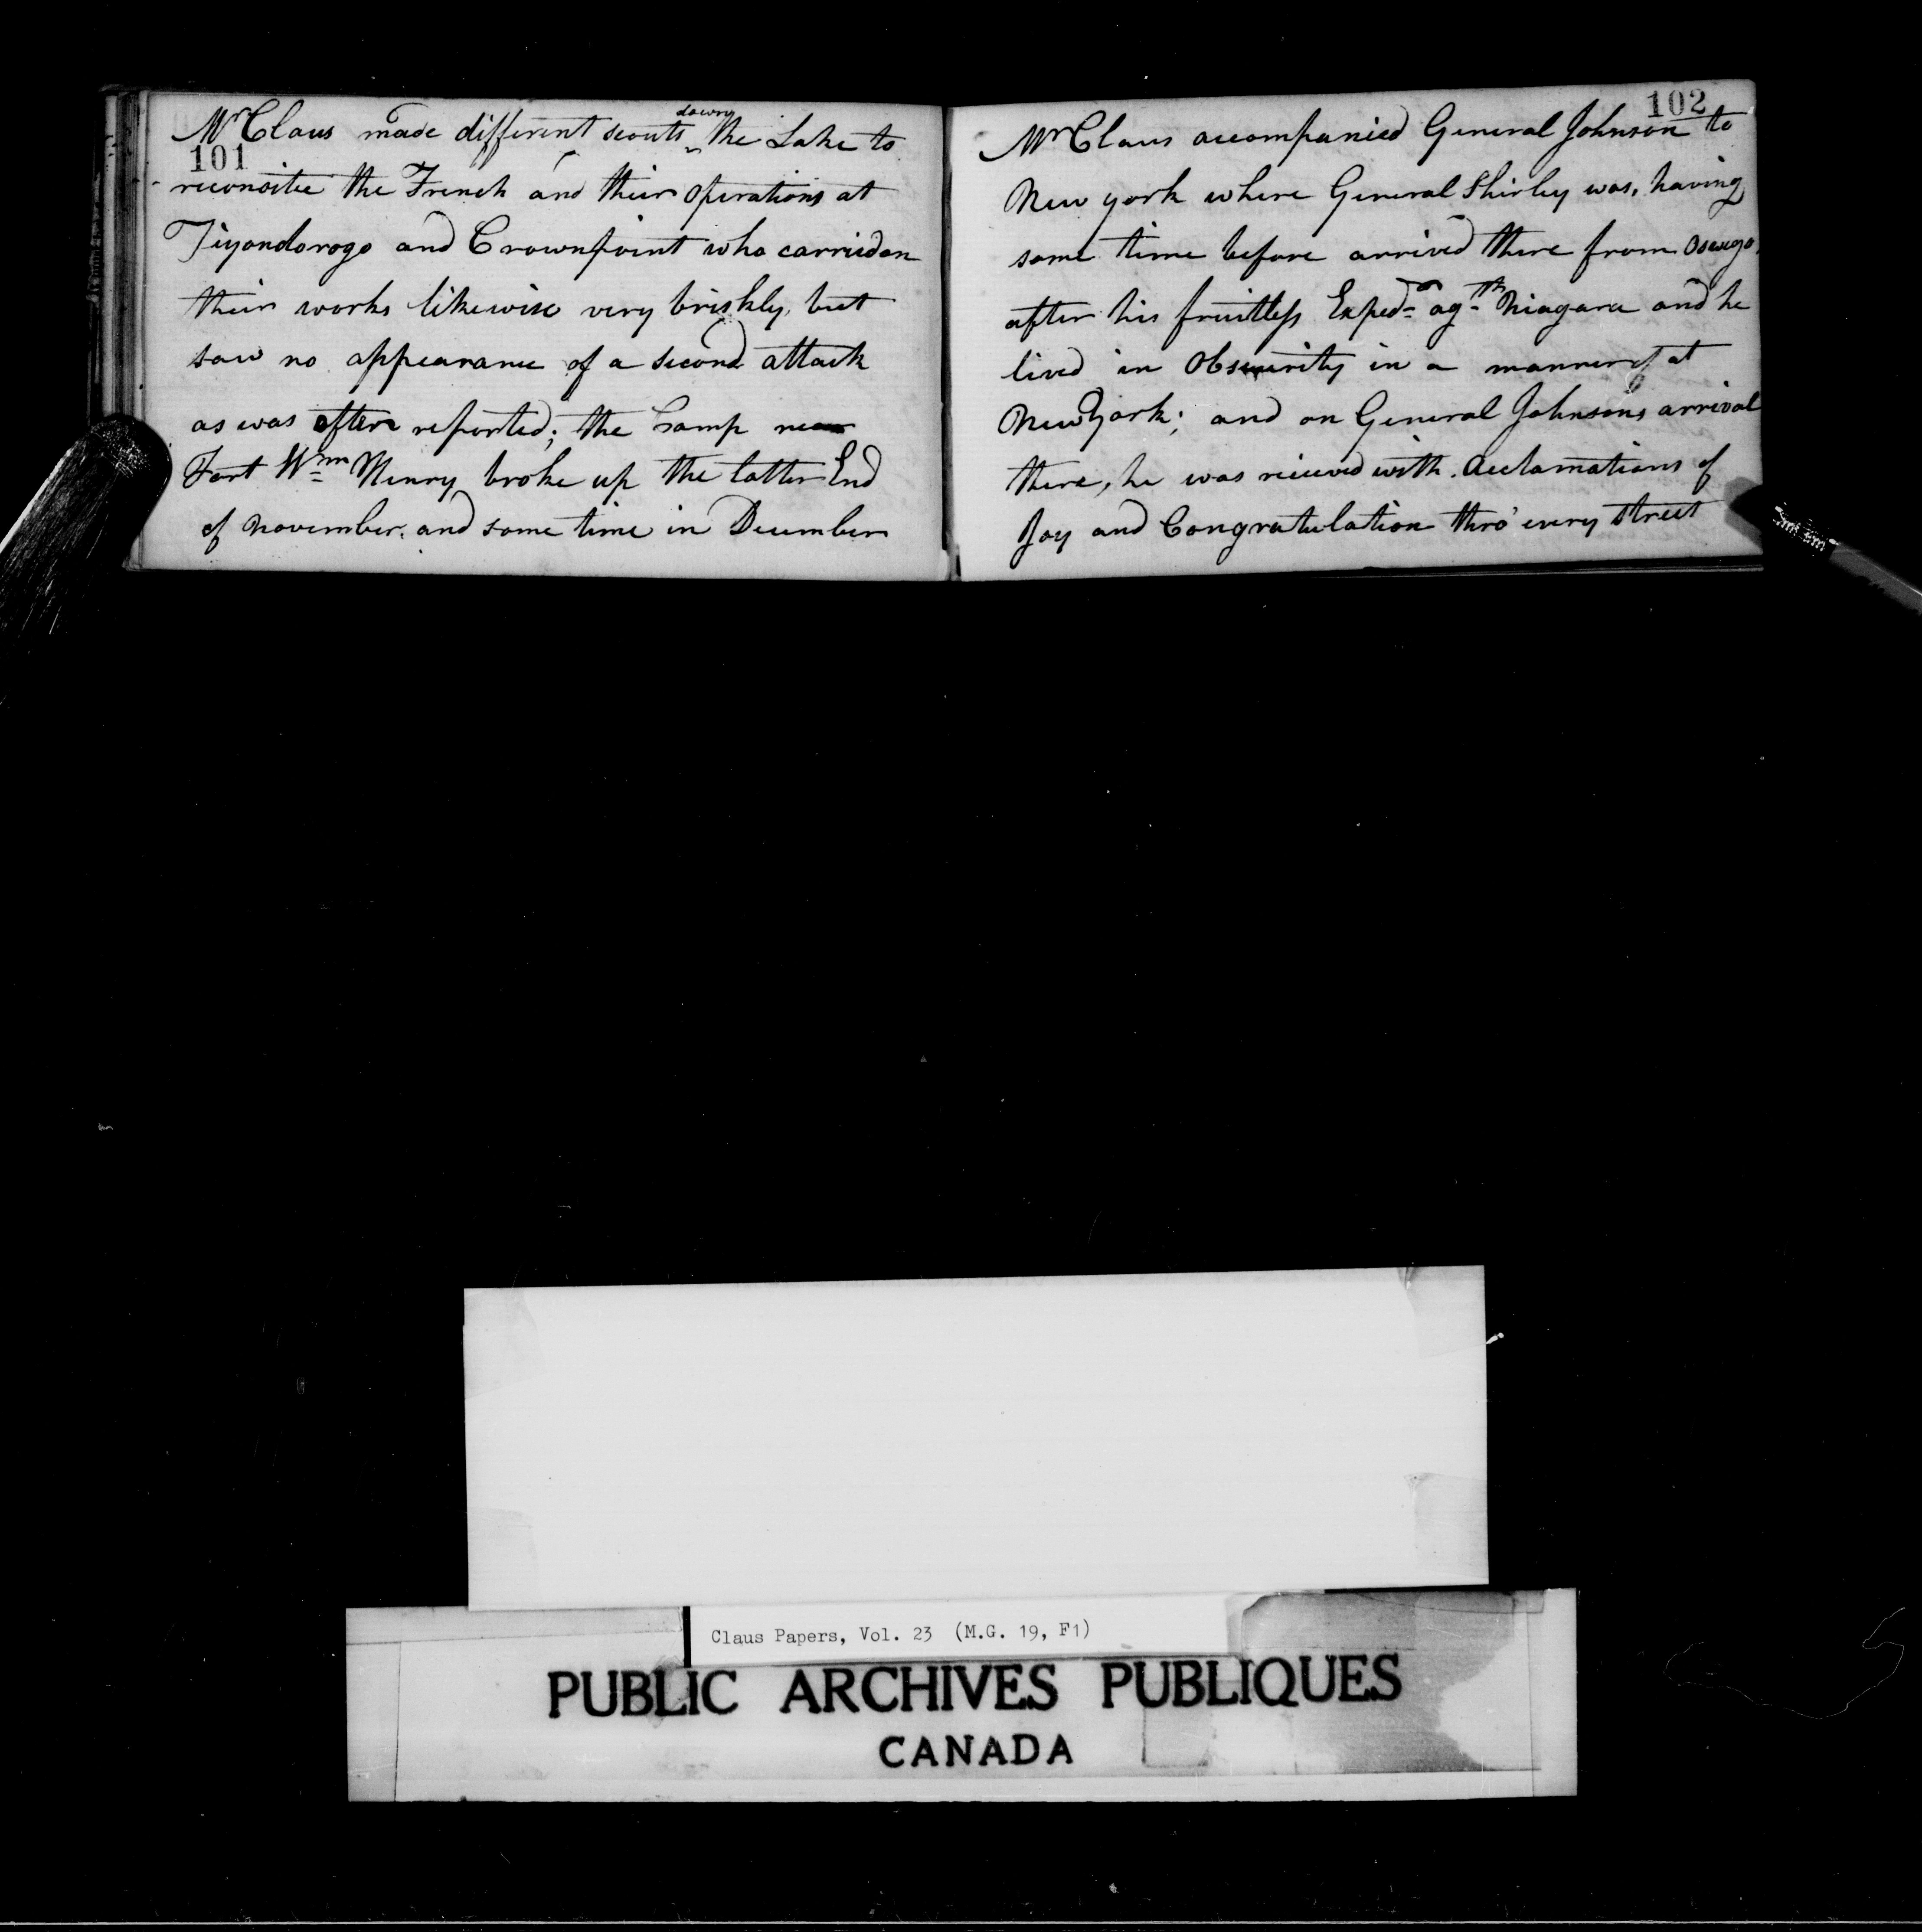 101
Mr Claus made different scouts down the Lake to
reconoitre the French and their operations at
Tiyondorogo and Crownpoint who carried on
their works likewise very briskly, but
saw no appearance of a second attack
as was often reported; the Camp near
Fort Wm Henry broke up the latter End
of November. and some time in December
102
Mr Claus accompanied General Johnson to
New york where General Shirley was, having
some time before arrived there from Oswego,
after his fruitless Exped.n ag.st Niagara and he
lived in Obscurity in a manner at
New York; and on General Johnsons arrival
there, he was recieved with Acclamations of
Joy and Congratulation thro' every street
Claus Papers, Vol. 23 (M.G. 19, F1)
PUBLIC ARCHIVES PUBLIQUES
CANADA